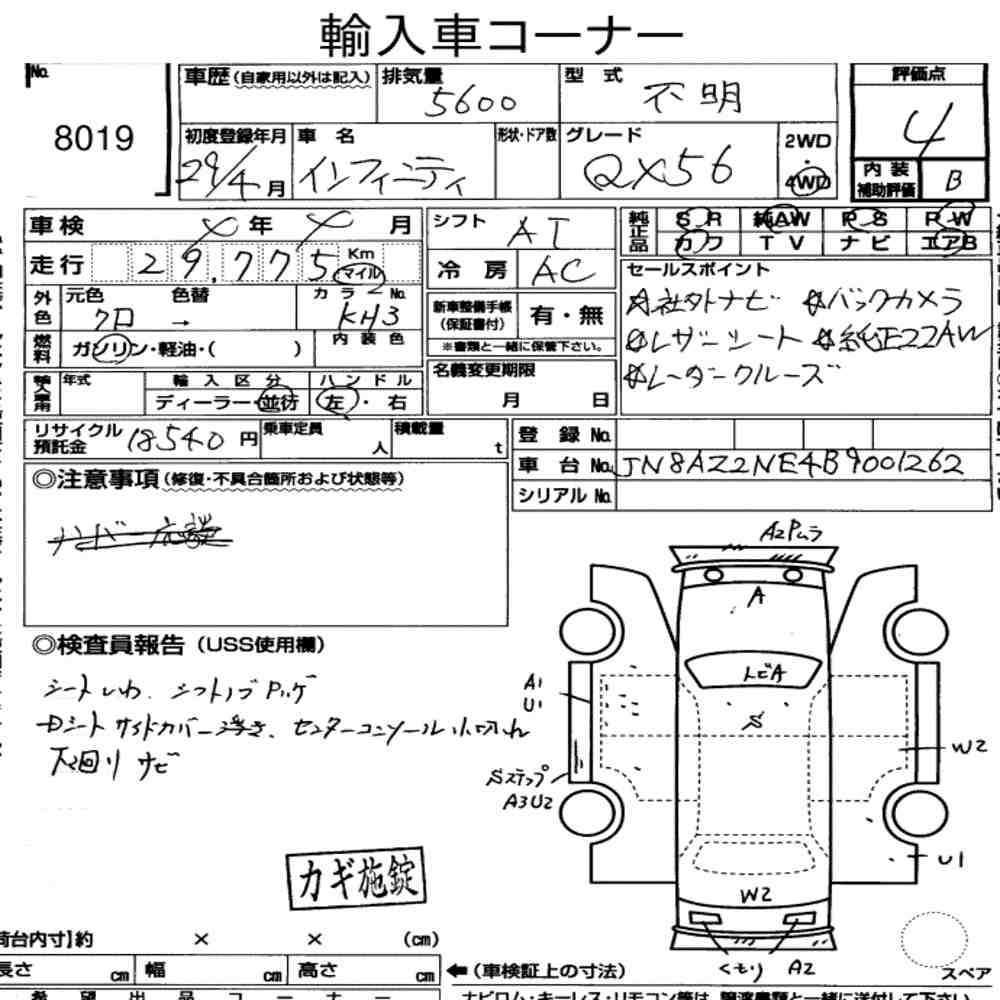 輸入車コーナー
No. 8019
車歴(自家用以外は記入)
排気量 5600
型式 不明
評価点 4
初度登録年月 29/4月
車名 インフィニティ
形状・ドア数
グレード QX56
2WD
4WD
内装補助評価 B
車検 年 月
シフト AT
純正品 SR 純AW PS PW
カワ TV ナビ エアB
走行 29,775 Km マイル
冷房 AC
セールスポイント
外色 元色 クロ → 色替
カラーNo. KH3
新車整備手帳(保証書付) 有・無
※書類と一緒に保管下さい。
社外ナビ バックカメラ
レザーシート 純正22AW
レーダークルーズ
燃料 ガソリン・軽油・( )
内装色
年式
輸入区分 ディーラー・並行
ハンドル 左・右
名義変更期限 月 日
リサイクル預託金 18540円
乗車定員 人
積載量 t
登録No.
車台No. JN8AZ2NE4B9001262
シリアルNo.
◎注意事項(修復・不具合箇所および状態等)
◎検査員報告(USS使用欄)
シートしわ. シフトノブ
Dシート サイドカバー浮き. センターコンソール小切れ
下廻り サビ
A2Pムラ
A
トビA
S
A1
U1
W2
Sステップ
A3U2
U1
W2
くもり A2
カギ施錠
荷台内寸】約 × × (cm)
長さ cm 幅 cm 高さ cm
←(車検証上の寸法)
スペア
希望出品コーナー
ナビロム・キーレス・リモコン等は、譲渡書類と一緒に送付して下さい